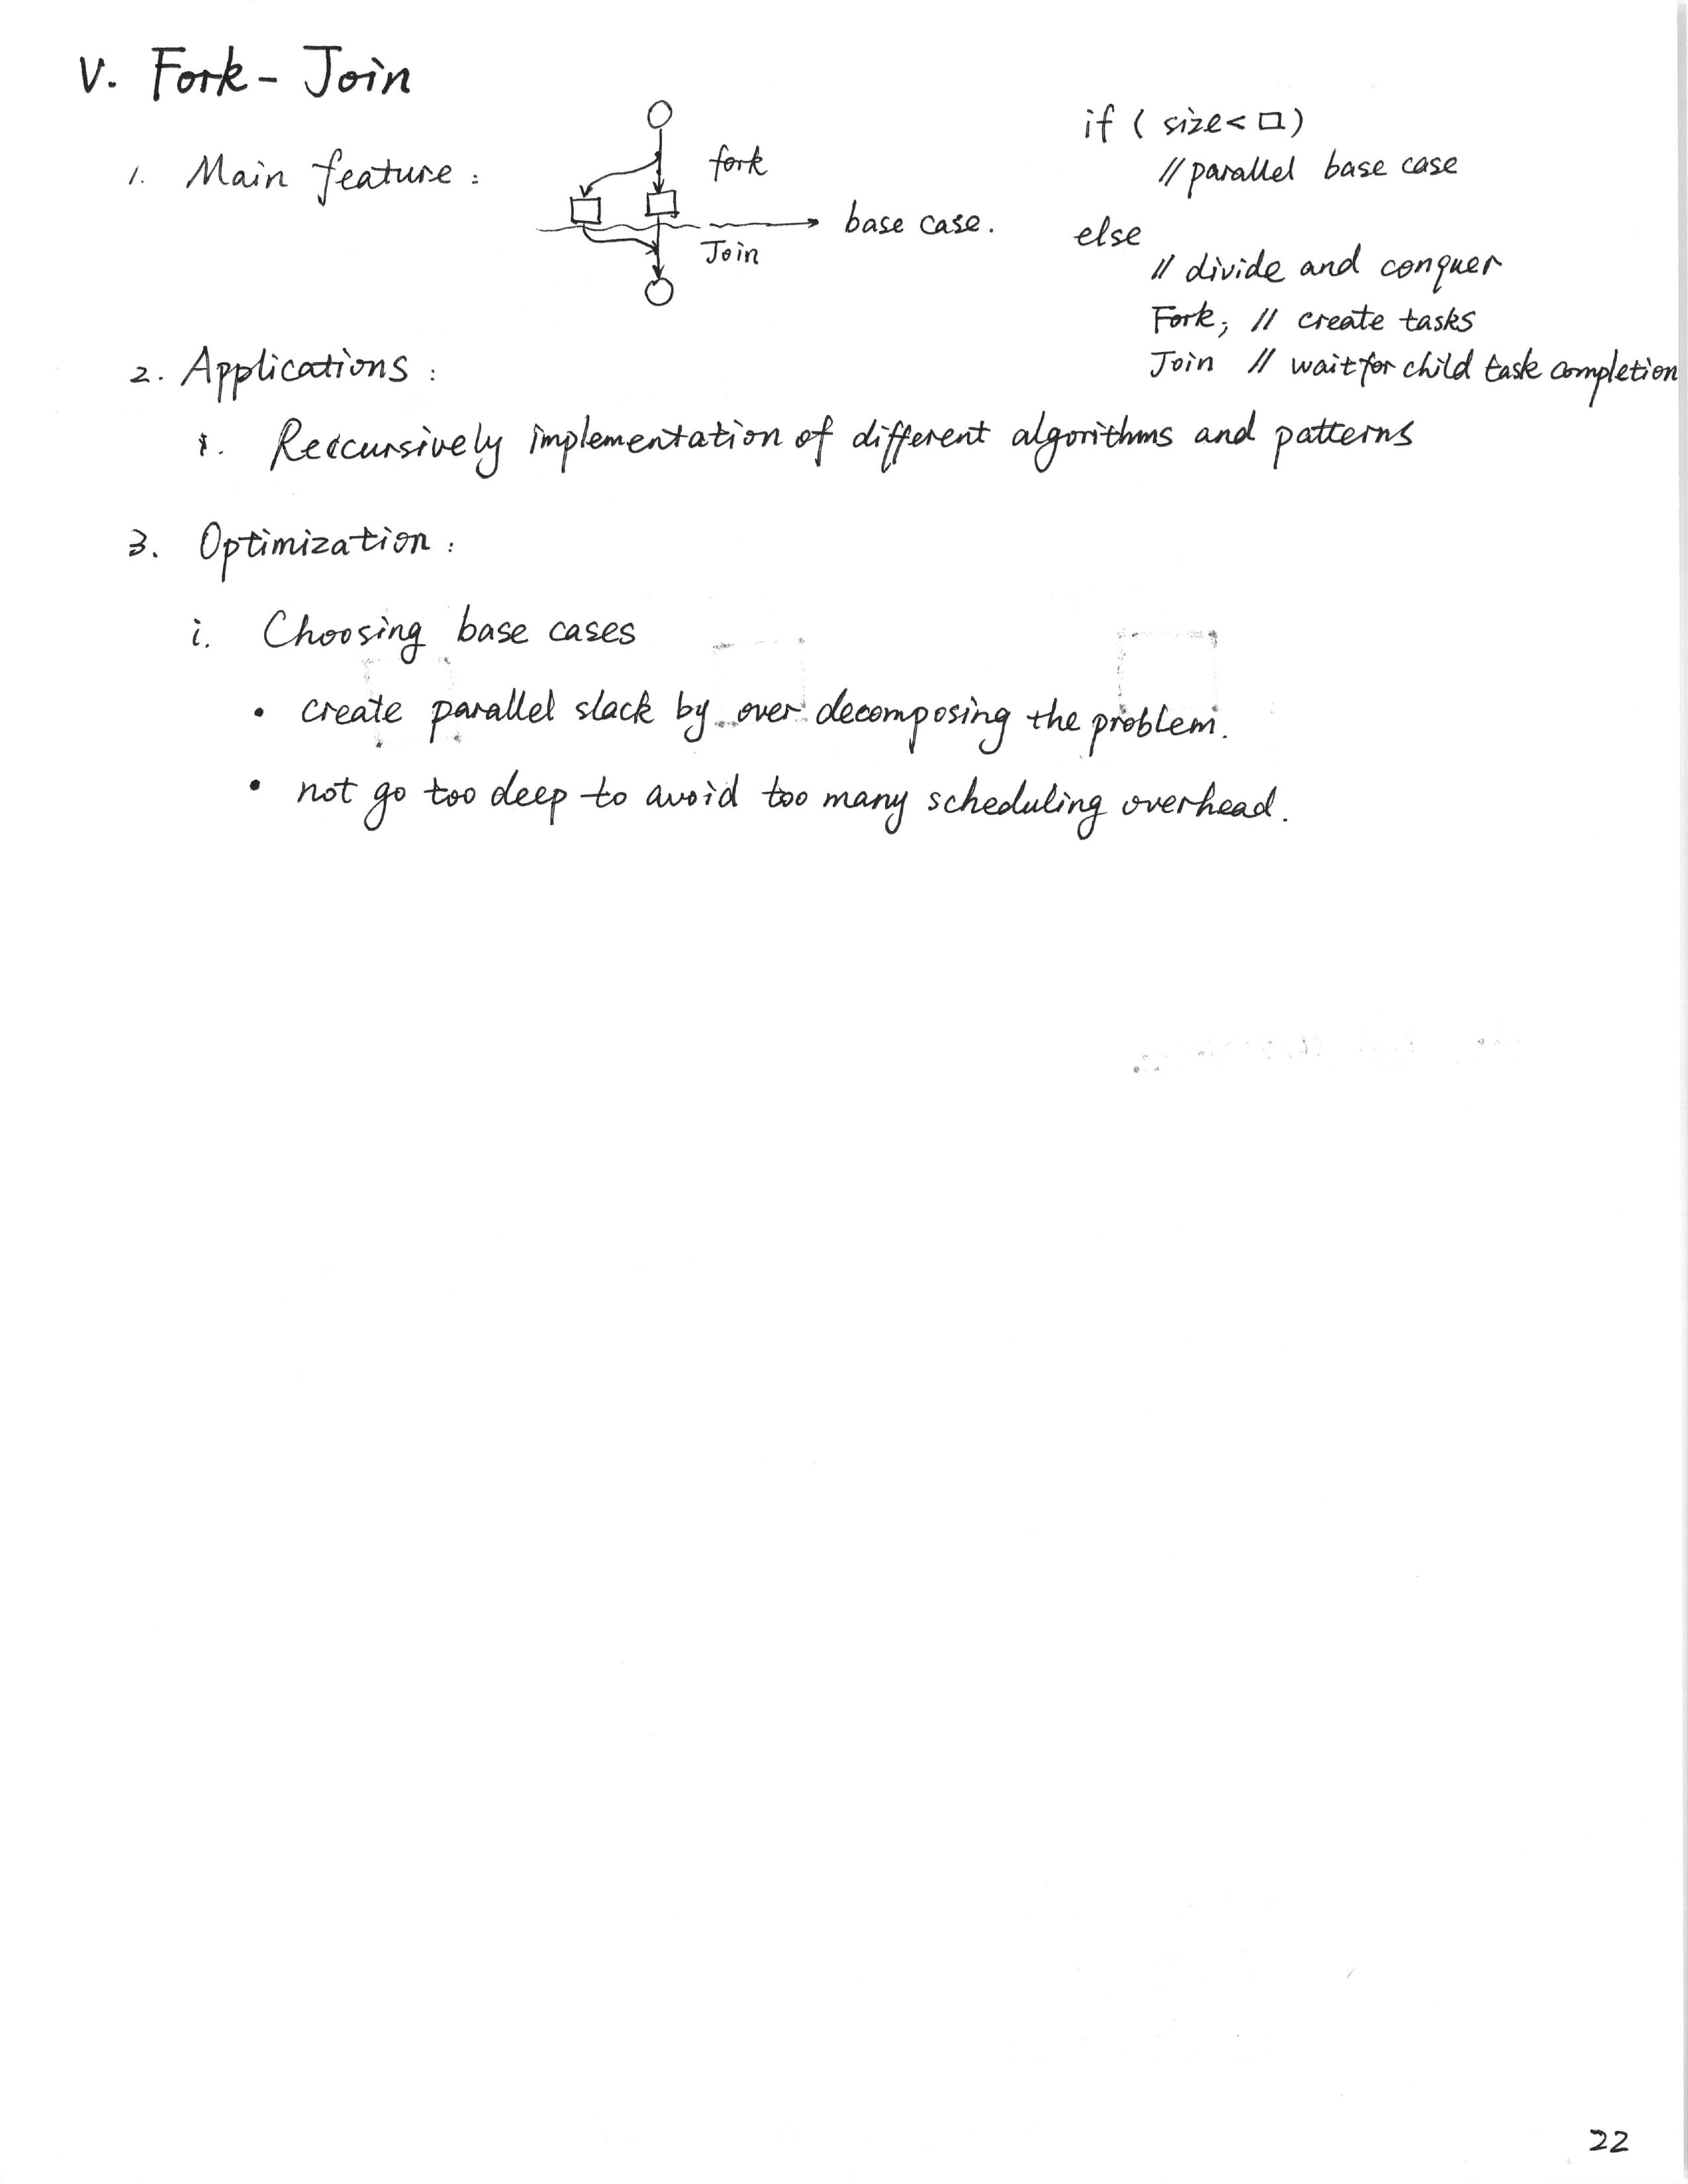 V. Fork - Join
1. Main feature :
fork
base case.
Join
if ( size < □ )
// parallel base case
else
// divide and conquer
Fork; // create tasks
Join // wait for child task completion
2. Applications :
i. Reccursively implementation of different algorithms and patterns
3. Optimization :
i. Choosing base cases
• create parallel slack by over decomposing the problem.
• not go too deep to avoid too many scheduling overhead.
22